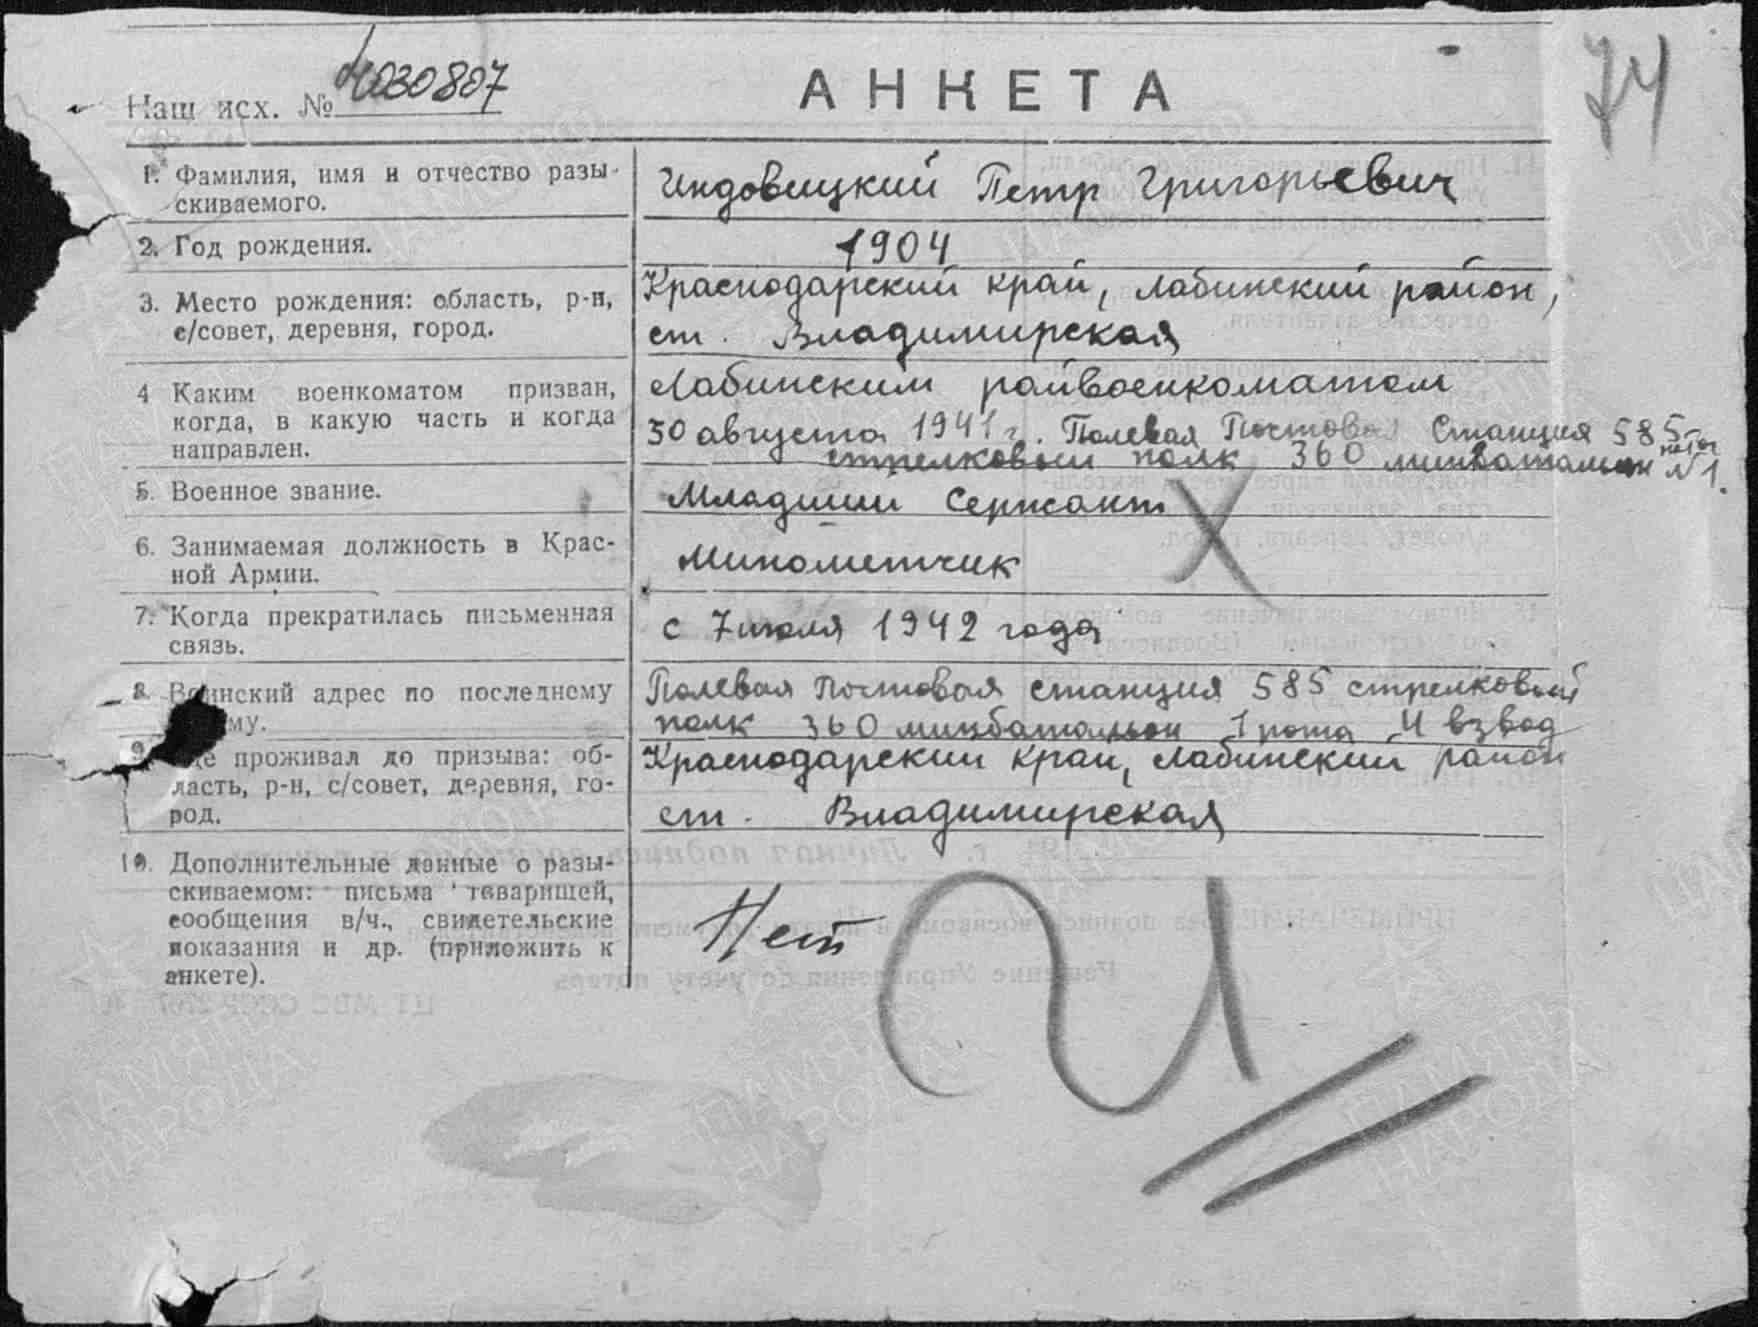 74
Наш исх. № 4030807
АНКЕТА
1. Фамилия, имя и отчество разы-
скиваемого.
Индовицкий Петр Григорьевич
2. Год рождения.
1904
3. Место рождения: область, р-н,
с/совет, деревня, город.
Краснодарский край, Лабинский район,
ст. Владимирская
4 Каким военкоматом призван,
когда, в какую часть и когда
направлен.
Лабинским райвоенкоматом
30 августа 1941 г. Полевая Почтовая Станция 585
стрелковый полк 360 минбатальон рота №1.
5. Военное звание.
Младший Сержант
6. Занимаемая должность в Крас-
ной Армии.
Минометчик
7. Когда прекратилась письменная
связь.
с 7 июля 1942 года
8. Воинский адрес по последнему
му.
Полевая Почтовая станция 585 стрелковый
полк 360 минбатальон 1 рота 4 взвод
9. Где проживал до призыва: об-
ласть, р-н, с/совет, деревня, го-
род.
Краснодарский край, Лабинский район
ст. Владимирская
10. Дополнительные данные о разы-
скиваемом: письма товарищей,
сообщения в/ч., свидетельские
показания и др. (приложить к
анкете).
Нет
И
ПАМЯТЬ
НАРОДА
ПАМЯТЬ
НАРОДА
ПАМЯТЬ
НАРОДА